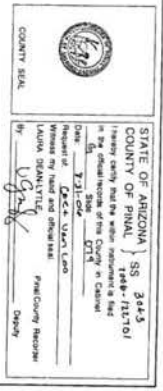 STATE OF ARIZONA } SS 3043
COUNTY OF PINAL 2006-122701
I hereby certify that the within instrument is filed
in the official records of this County in Cabinet
G Slide 079
Date: 8-31-06
Request of: CECC Van Loo
Witness my hand and official seal.
LAURA DEAN-LYTLE Pinal County Recorder
By: Deputy
COUNTY SEAL